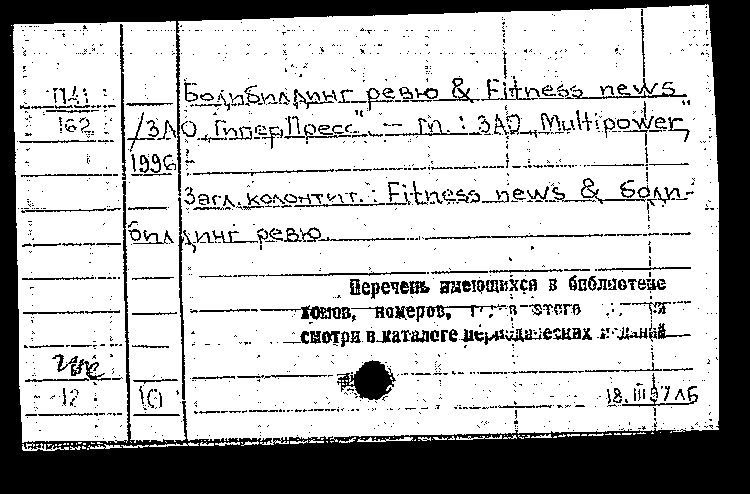 П41 Бодибилдинг ревю & Fitness news
162 /ЗАО „ГиперПресс“. – М.: ЗАО „Multipower“,
1996 -
Загл. колонтит.: Fitness news & боди-
билдинг ревю.
Перечень имеющихся в библиотеке
томов, номеров, этого
смотри в каталоге периодических изданий
12 (0) 18.III 97 ЛБ